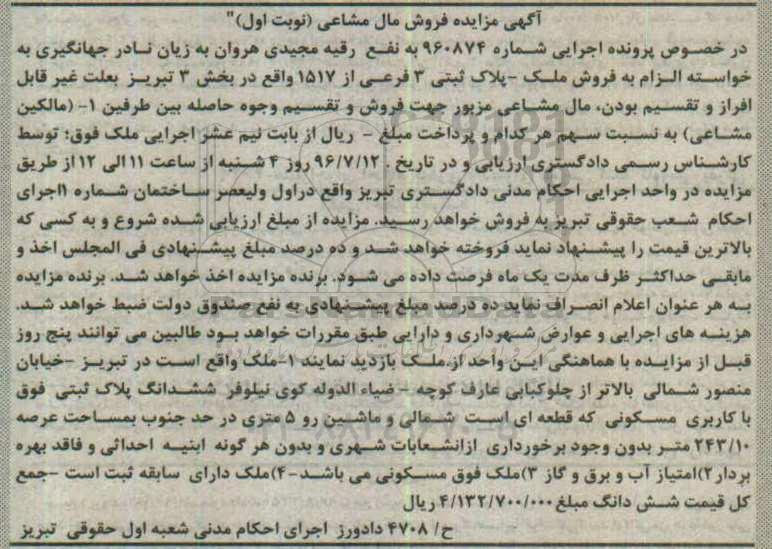 آگهی مزایده فروش مال مشاعی (نوبت اول)"
در خصوص پرونده اجرایی شماره ۹۶۰۸۷۴ به نفع رقیه مجیدی هروان به زیان نادر جهانگیری به
خواسته الزام به فروش ملک -پلاک ثبتی ۳ فرعی از ۱۵۱۷ واقع در بخش ۳ تبریز بعلت غیر قابل
افراز و تقسیم بودن، مال مشاعی مزبور جهت فروش و تقسیم وجوه حاصله بین طرفین ۱- (مالکین
مشاعی) به نسبت سهم هر کدام و پرداخت مبلغ - ریال از بابت نیم عشر اجرایی ملک فوق؛ توسط
کارشناس رسمی دادگستری ارزیابی و در تاریخ . ۹۶/۷/۱۲ روز ۴ شنبه از ساعت ۱۱ الی ۱۲ از طریق
مزایده در واحد اجرایی احکام مدنی دادگستری تبریز واقع دراول ولیعصر ساختمان شماره ۱اجرای
احکام شعب حقوقی تبریز به فروش خواهد رسید. مزایده از مبلغ ارزیابی شده شروع و به کسی که
بالاترین قیمت را پیشنهاد نماید فروخته خواهد شد و ده درصد مبلغ پیشنهادی فی المجلس اخذ و
مابقی حداکثر ظرف مدت یک ماه فرصت داده می شود. برنده مزایده اخذ خواهد شد. برنده مزایده
به هر عنوان اعلام انصراف نماید ده درصد مبلغ پیشنهادی به نفع صندوق دولت ضبط خواهد شد.
هزینه های اجرایی و عوارض شهرداری و دارایی طبق مقررات خواهد بود طالبین می توانند پنج روز
قبل از مزایده با هماهنگی این واحد از ملک بازدید نمایند ۱-ملک واقع است در تبریز -خیابان
منصور شمالی بالاتر از چلوکبابی عارف کوچه - ضیاء الدوله کوی نیلوفر ششدانگ پلاک ثبتی فوق
با کاربری مسکونی که قطعه ای است شمالی و ماشین رو ۵ متری در حد جنوب بمساحت عرصه
۲۴۳/۱۰ متر بدون وجود برخورداری ازانشعابات شهری و بدون هر گونه ابنیه احداثی و فاقد بهره
بردار۲)امتیاز آب و برق و گاز ۳)ملک فوق مسکونی می باشد-۴)ملک دارای سابقه ثبت است -جمع
کل قیمت شش دانگ مبلغ ۴/۱۳۲/۷۰۰/۰۰۰ ریال
ح/ ۴۷۰۸ دادورز اجرای احکام مدنی شعبه اول حقوقی تبریز